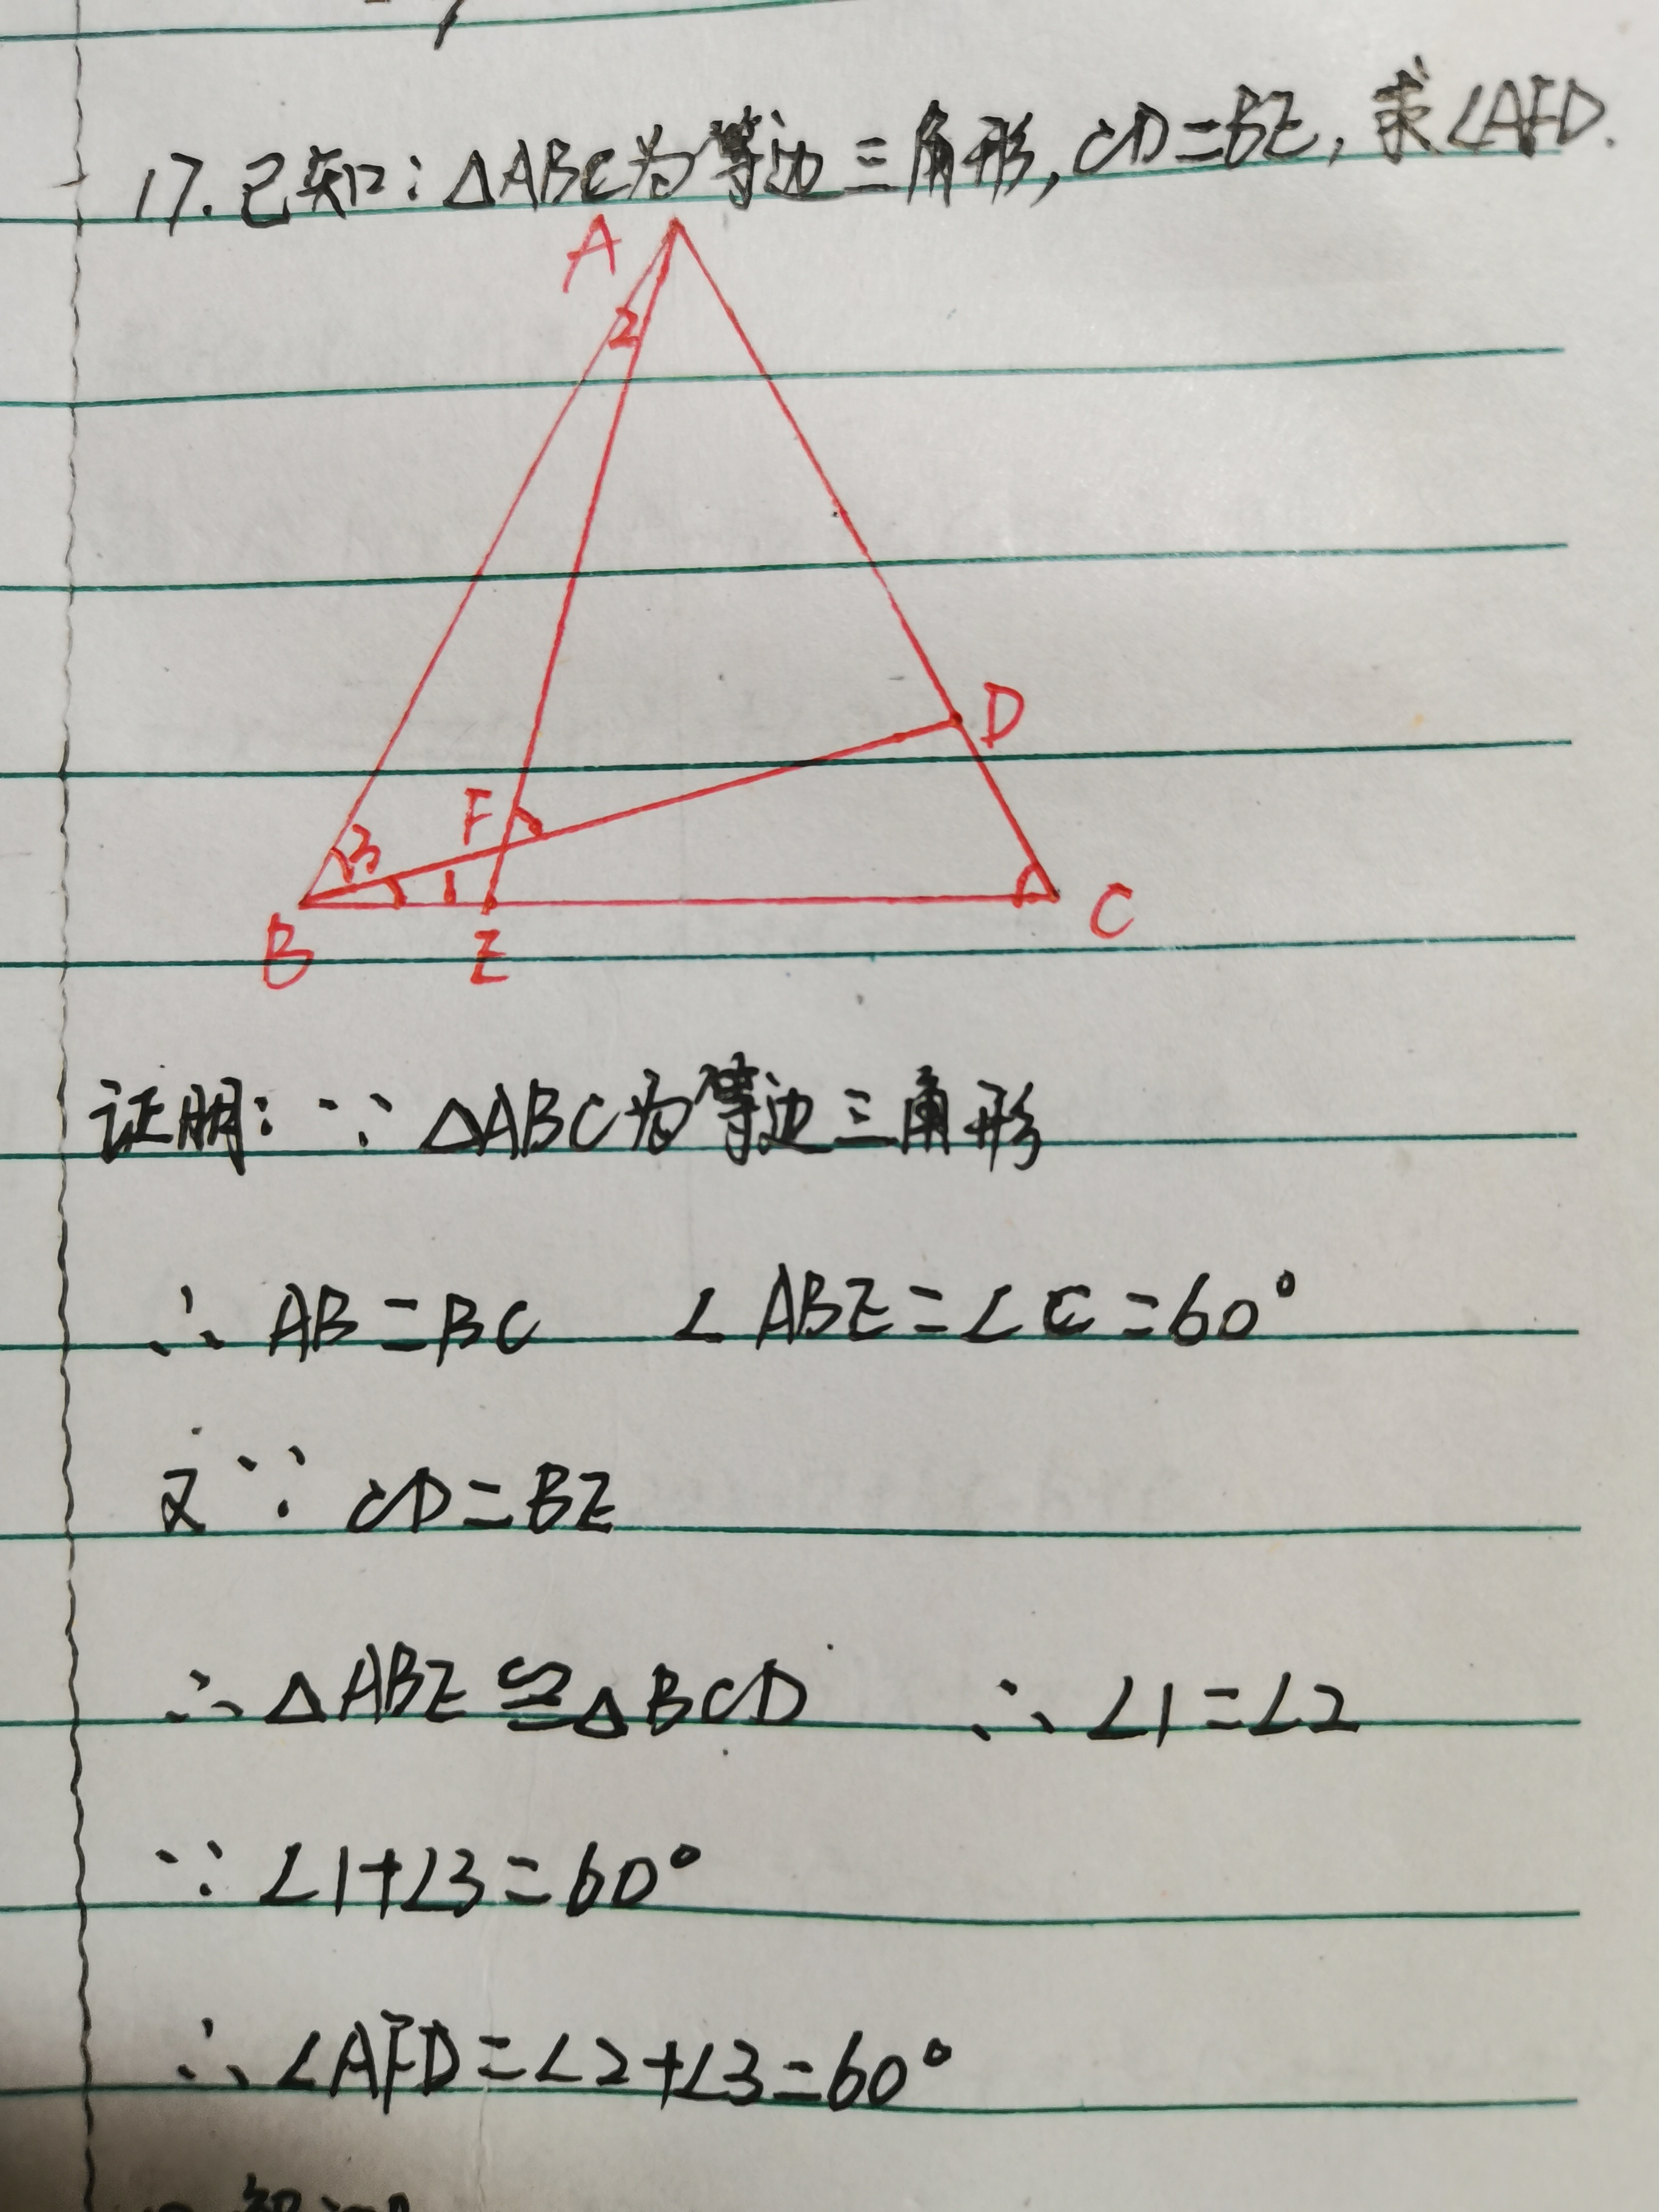 17. 已知：△ABC为等边三角形，CD=BE，求∠AFD.
A
2
D
F
3
1
C
B
E
证明：∵ △ABC为等边三角形
∴ AB=BC ∠ABE=∠C=60°
又∵ CD=BE
∴△ABE≌△BCD ∴∠1=∠2
∵∠1+∠3=60°
∴∠AFD=∠2+∠3=60°